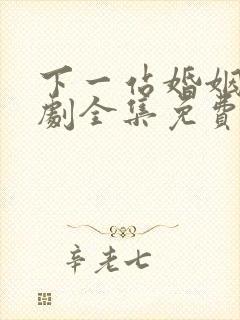 下一站婚姻
劇全集免費
辛老七